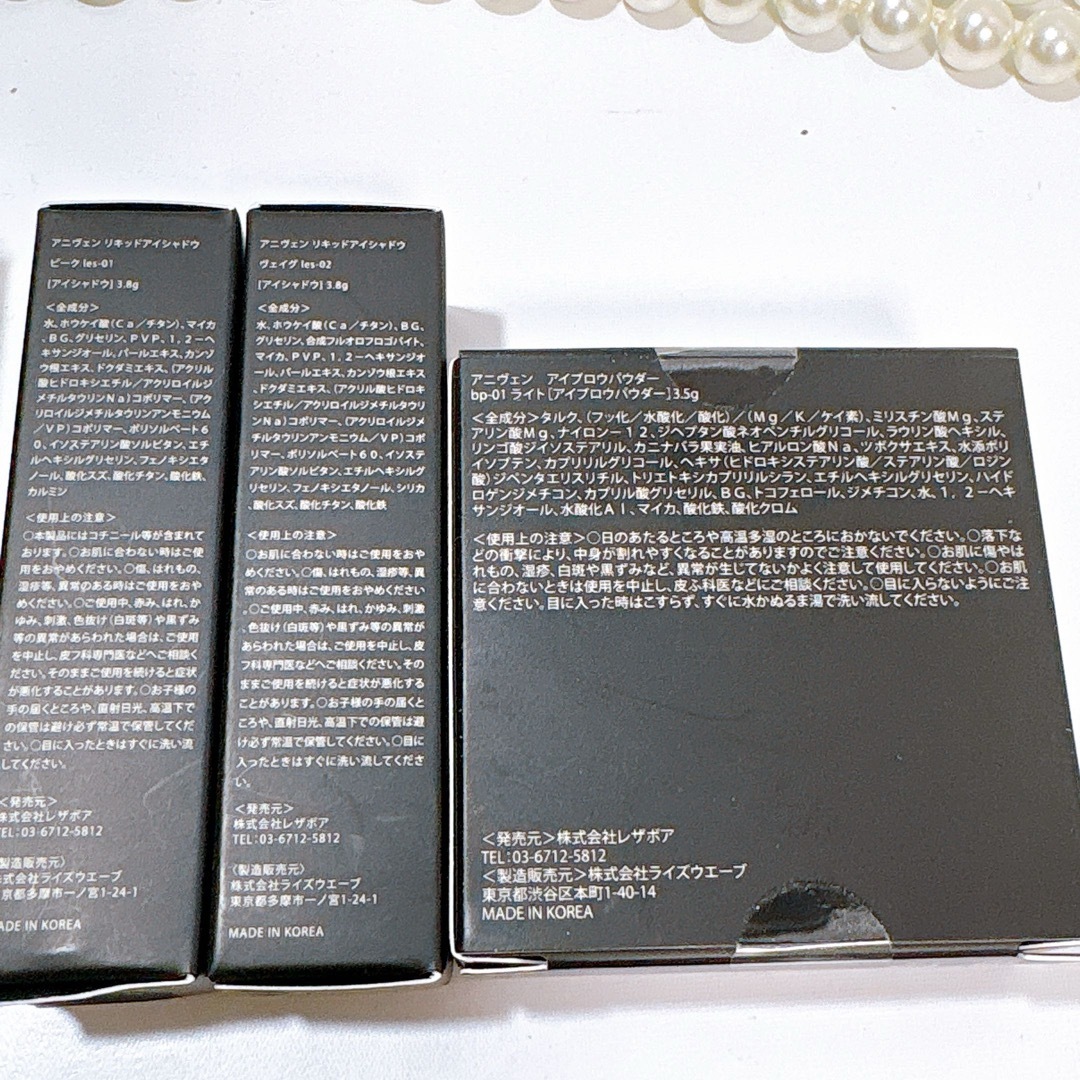 アニヴェン リキッドアイシャドウ
ピーク les-01
[アイシャドウ] 3.8g
＜全成分＞
水、ホウケイ酸（Ca／チタン）、マイカ
、BG、グリセリン、PVP、1，2－ヘ
キサンジオール、パールエキス、カンゾ
ウ根エキス、ドクダミエキス、（アクリル
酸ヒドロキシエチル／アクリロイルジ
メチルタウリンNa）コポリマー、（アク
リロイルジメチルタウリンアンモニウム
／VP）コポリマー、ポリソルベート6
0、イソステアリン酸ソルビタン、エチ
ルヘキシルグリセリン、フェノキシエタ
ノール、酸化スズ、酸化チタン、酸化鉄、
カルミン
＜使用上の注意＞
○本製品にはコチニール等が含まれて
おります。○お肌に合わない時はご使用
をおやめください。○傷、はれもの、
湿疹等、異常のある時はご使用をおや
めください。○ご使用中、赤み、はれ、か
ゆみ、刺激、色抜け（白斑等）や黒ずみ
等の異常があらわれた場合は、ご使用
を中止し、皮フ科専門医などへご相談く
ださい。そのままご使用を続けると症状
が悪化することがあります。○お子様の
手の届くところや、直射日光、高温下で
の保管は避け必ず常温で保管してくだ
さい。○目に入ったときはすぐに洗い流
してください。
＜発売元＞
株式会社レザボア
TEL：03-6712-5812
〈製造販売元〉
株式会社ライズウエーブ
東京都多摩市一ノ宮1-24-1
MADE IN KOREA
アニヴェン リキッドアイシャドウ
ヴェイグ les-02
[アイシャドウ] 3.8g
＜全成分＞
水、ホウケイ酸（Ca／チタン）、BG、
グリセリン、合成フルオロフロゴパイト、
マイカ、PVP、1，2－ヘキサンジオ
ール、パールエキス、カンゾウ根エキス
、ドクダミエキス、（アクリル酸ヒドロキ
シエチル／アクリロイルジメチルタウリ
ンNa）コポリマー、（アクリロイルジメ
チルタウリンアンモニウム／VP）コポ
リマー、ポリソルベート60、イソステ
アリン酸ソルビタン、エチルヘキシルグ
リセリン、フェノキシエタノール、シリカ
、酸化スズ、酸化チタン、酸化鉄
＜使用上の注意＞
○お肌に合わない時はご使用をおや
めください。○傷、はれもの、湿疹等、異
常のある時はご使用をおやめください
。○ご使用中、赤み、はれ、かゆみ、刺激
、色抜け（白斑等）や黒ずみ等の異常が
あらわれた場合は、ご使用を中止し、皮
フ科専門医などへご相談ください。その
ままご使用を続けると症状が悪化する
ことがあります。○お子様の手の届くと
ころや、直射日光、高温下での保管は避
け必ず常温で保管してください。○目に
入ったときはすぐに洗い流してくださ
い。
＜発売元＞
株式会社レザボア
TEL：03-6712-5812
〈製造販売元〉
株式会社ライズウエーブ
東京都多摩市一ノ宮1-24-1
MADE IN KOREA
アニヴェン　アイブロウパウダー
bp-01 ライト[アイブロウパウダー]3.5g
＜全成分＞タルク、（フッ化／水酸化／酸化）／（Mg／K／ケイ素）、ミリスチン酸Mg、ステ
アリン酸Mg、ナイロン－12、ジヘプタン酸ネオペンチルグリコール、ラウリン酸ヘキシル、
リンゴ酸ジイソステアリル、カニナバラ果実油、ヒアルロン酸Na、ツボクサエキス、水添ポリ
イソブテン、カプリリルグリコール、ヘキサ（ヒドロキシステアリン酸／ステアリン酸／ロジン
酸）ジペンタエリスリチル、トリエトキシカプリリルシラン、エチルヘキシルグリセリン、ハイド
ロゲンジメチコン、カプリル酸グリセリル、BG、トコフェロール、ジメチコン、水、1，2－ヘキ
サンジオール、水酸化Al、マイカ、酸化鉄、酸化クロム
＜使用上の注意＞○日のあたるところや高温多湿のところにおかないでください。○落下な
どの衝撃により、中身が割れやすくなることがありますのでご注意ください。○お肌に傷やは
れもの、湿疹、白斑や黒ずみなど、異常が生じてないかよく注意して使用してください。○お肌
に合わないときは使用を中止し、皮ふ科医などにご相談ください。○目に入らないようにご注
意ください。目に入った時はこすらず、すぐに水かぬるま湯で洗い流してください。
＜発売元＞株式会社レザボア
TEL：03-6712-5812
＜製造販売元＞株式会社ライズウエーブ
東京都渋谷区本町1-40-14
MADE IN KOREA